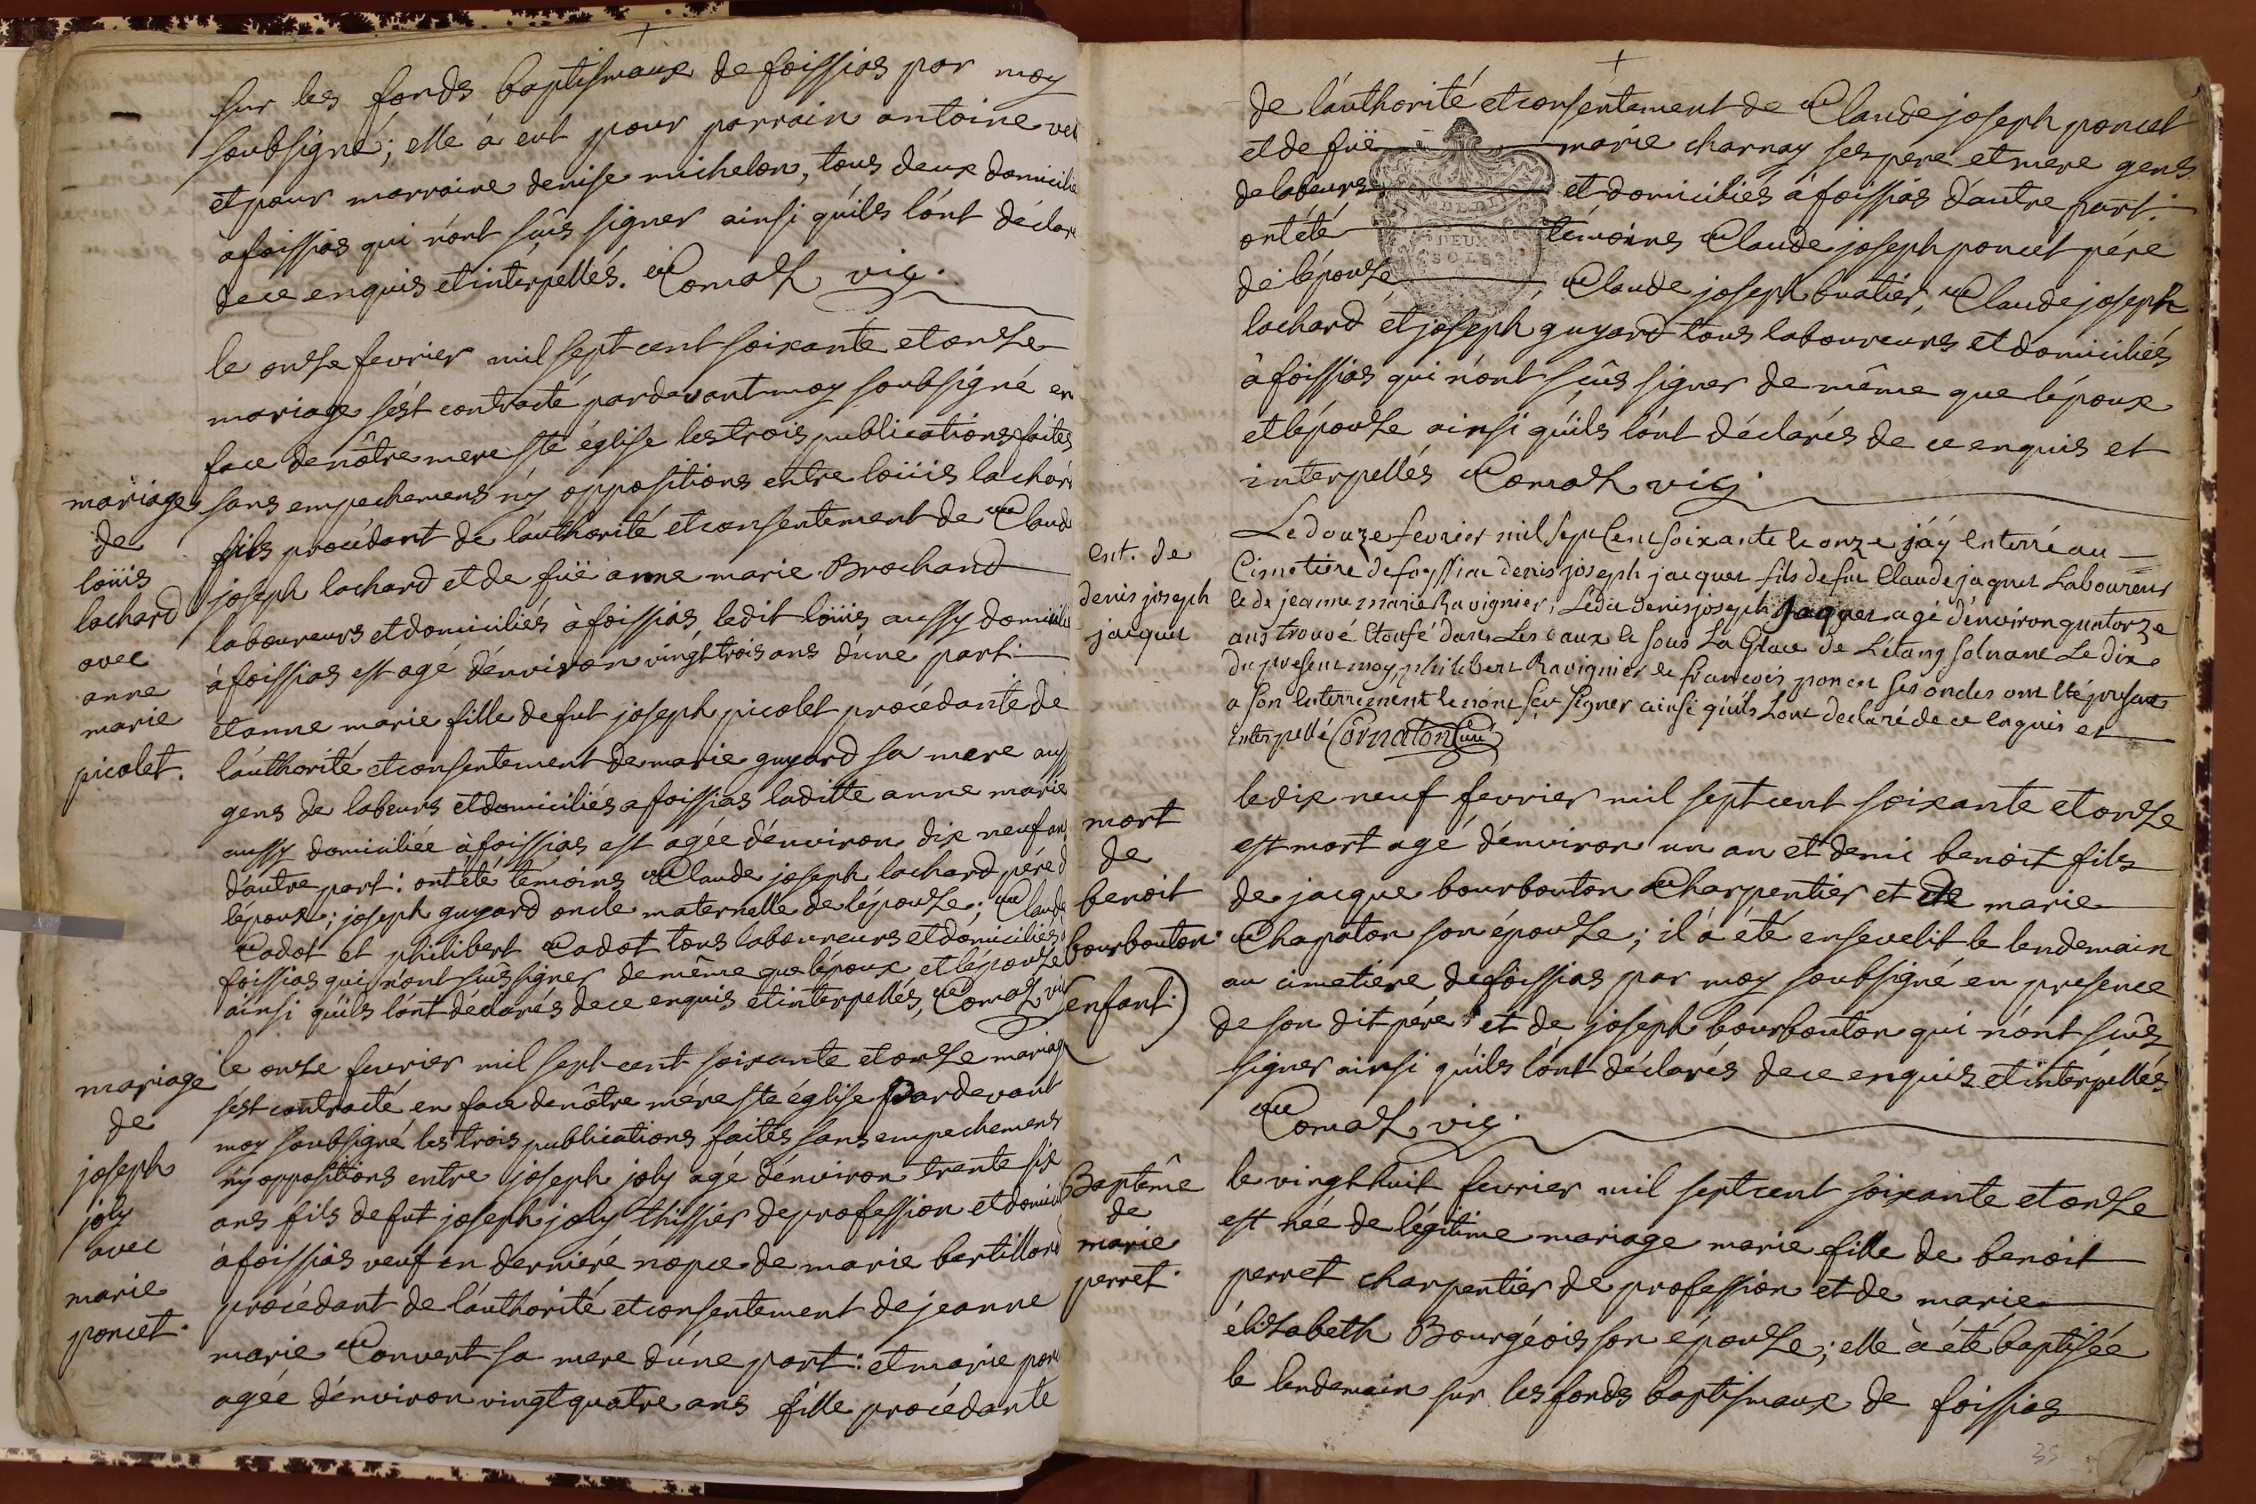 sur les fonds baptismaux de foissias par moy
soubsigné; elle à eut pour parrain antoine
et pour marraine denise michelon, tous deux domicilié
a foissias qui n'ont sûs signer ainsi qu'ils l'ont déclaré
de ce enquis et intérpellés. Comaz vic.
le onze fevrier mil sept cent soixante et onze
mariage s'est contracté pardevant moy soubsigné en
face de nôtre mere ste église les trois publications faites
mariage
sans empechemens n'y oppositions entre loüis lachard
de
fils procédant de l'authorité et consentement de Claude
loüis
joseph lachard et de füe anne marie Brochand
lachard
laboureurs et domiciliés à foissias, ledit loüis aussy domicilié
avec
à foissias est agé d'environ vingt trois ans d'une part:
anne
marie
et anne marie fille de fut joseph picolet procédante de
picolet.
l'authorité et consentement de marie guyard sa mere aussy
gens de labeurs et domiciliés a foissias laditte anne marie
aussy domiciliée à foissias est agée d'environ dix neuf ans
d'autre part: ont été témoins Claude joseph lachard pére de
l'époux; joseph guyard oncle maternelle de l'épouze; Claude
Cadot et philibert Cadot tous laboureurs et domiciliés à
foissias qui n'ont sûs signer de même que l'époux et l'épouze
ainsi qu'ils l'ont déclarés de ce enquis et interpellés, Comaz vic
le onze fevrier mil sept cent soixante et onze mariage
mariage
s'est contracté en face de nôtre mére ste église pardevant
de
moy soubsigné les trois publications faites sans empechemens
joseph
n'y oppositions entre joseph joly agé d'environ trente six
joly
ans fils de fut joseph joly thissier de profession et domicilié
avec
à foissias veuf en derniere nopce de marie bertillard
marie
procédant de l'authorité et consentement de jeanne
poncet.
marie Convert sa mere d'une part: et marie poncet
agée d'environ vingt quatre ans fille procédante
de l'authorité et consentement de Claude joseph poncet
et de füe marie charnay ses pere et mere gens
de labeurs et domiciliés à foissias d'autre part:
ont été témoins Claude joseph poncet pére
DEUX
SOLS
de l'épouze, Claude joseph buatier, Claude joseph
lachard et joseph guyard tous laboureurs et domiciliés
à foissias qui n'ont sûs signer de même que l'époux
et l'épouze ainsi qu'ils l'ont déclarés de ce enquis et
interpellés Comaz vic.
Le douze fevrier mil sept Cent soixante et onze j'aÿ Enterré au
ent. de
denis joseph
jacquet
Cimetiere de foyssia denis joseph jacquet fils de fut Claude jaquet Laboureur
et de jeanne marie Ravignier; Ledit denis joseph jaquet agé d'environ quatorze
ans trouvé Etoufé dans Les Eaux et sous La Glace de L'étang solnane Le dix
du present moy, philibert Ravignier et francois poncet ses oncles ont Eté presents
a son Enterrement et n'ont sçu signer ainsi qu'ils L'ont declaré de ce Enquis et
Interpellé Cornaton Curé
le dix neuf fevrier mil sept cent soixante et onze
mort
est mort agé d'environ un an et demi benoit fils
de
benoit
de jacque bourbouton Charpentier et de marie
bourbouton.
Chapaton son épouze; il à été ensevelit le lendemain
au cimetiere de foissias par moy soubsigné en presence
(enfant.)
de son dit pére et de joseph bourbouton qui n'ont sûs
signer ainsi qu'ils l'ont déclarés de ce enquis et intérpellés.
Comaz vic.
Baptême
le vingt huit fevrier mil sept cent soixante et onze
de
est née de légitime mariage marie fille de benoit
marie
perret.
perret charpentier de profession et de marie
élizabeth Bourgéois son épouze; elle à été baptisée
le lendemain sur les fonds baptismaux de foissias
35